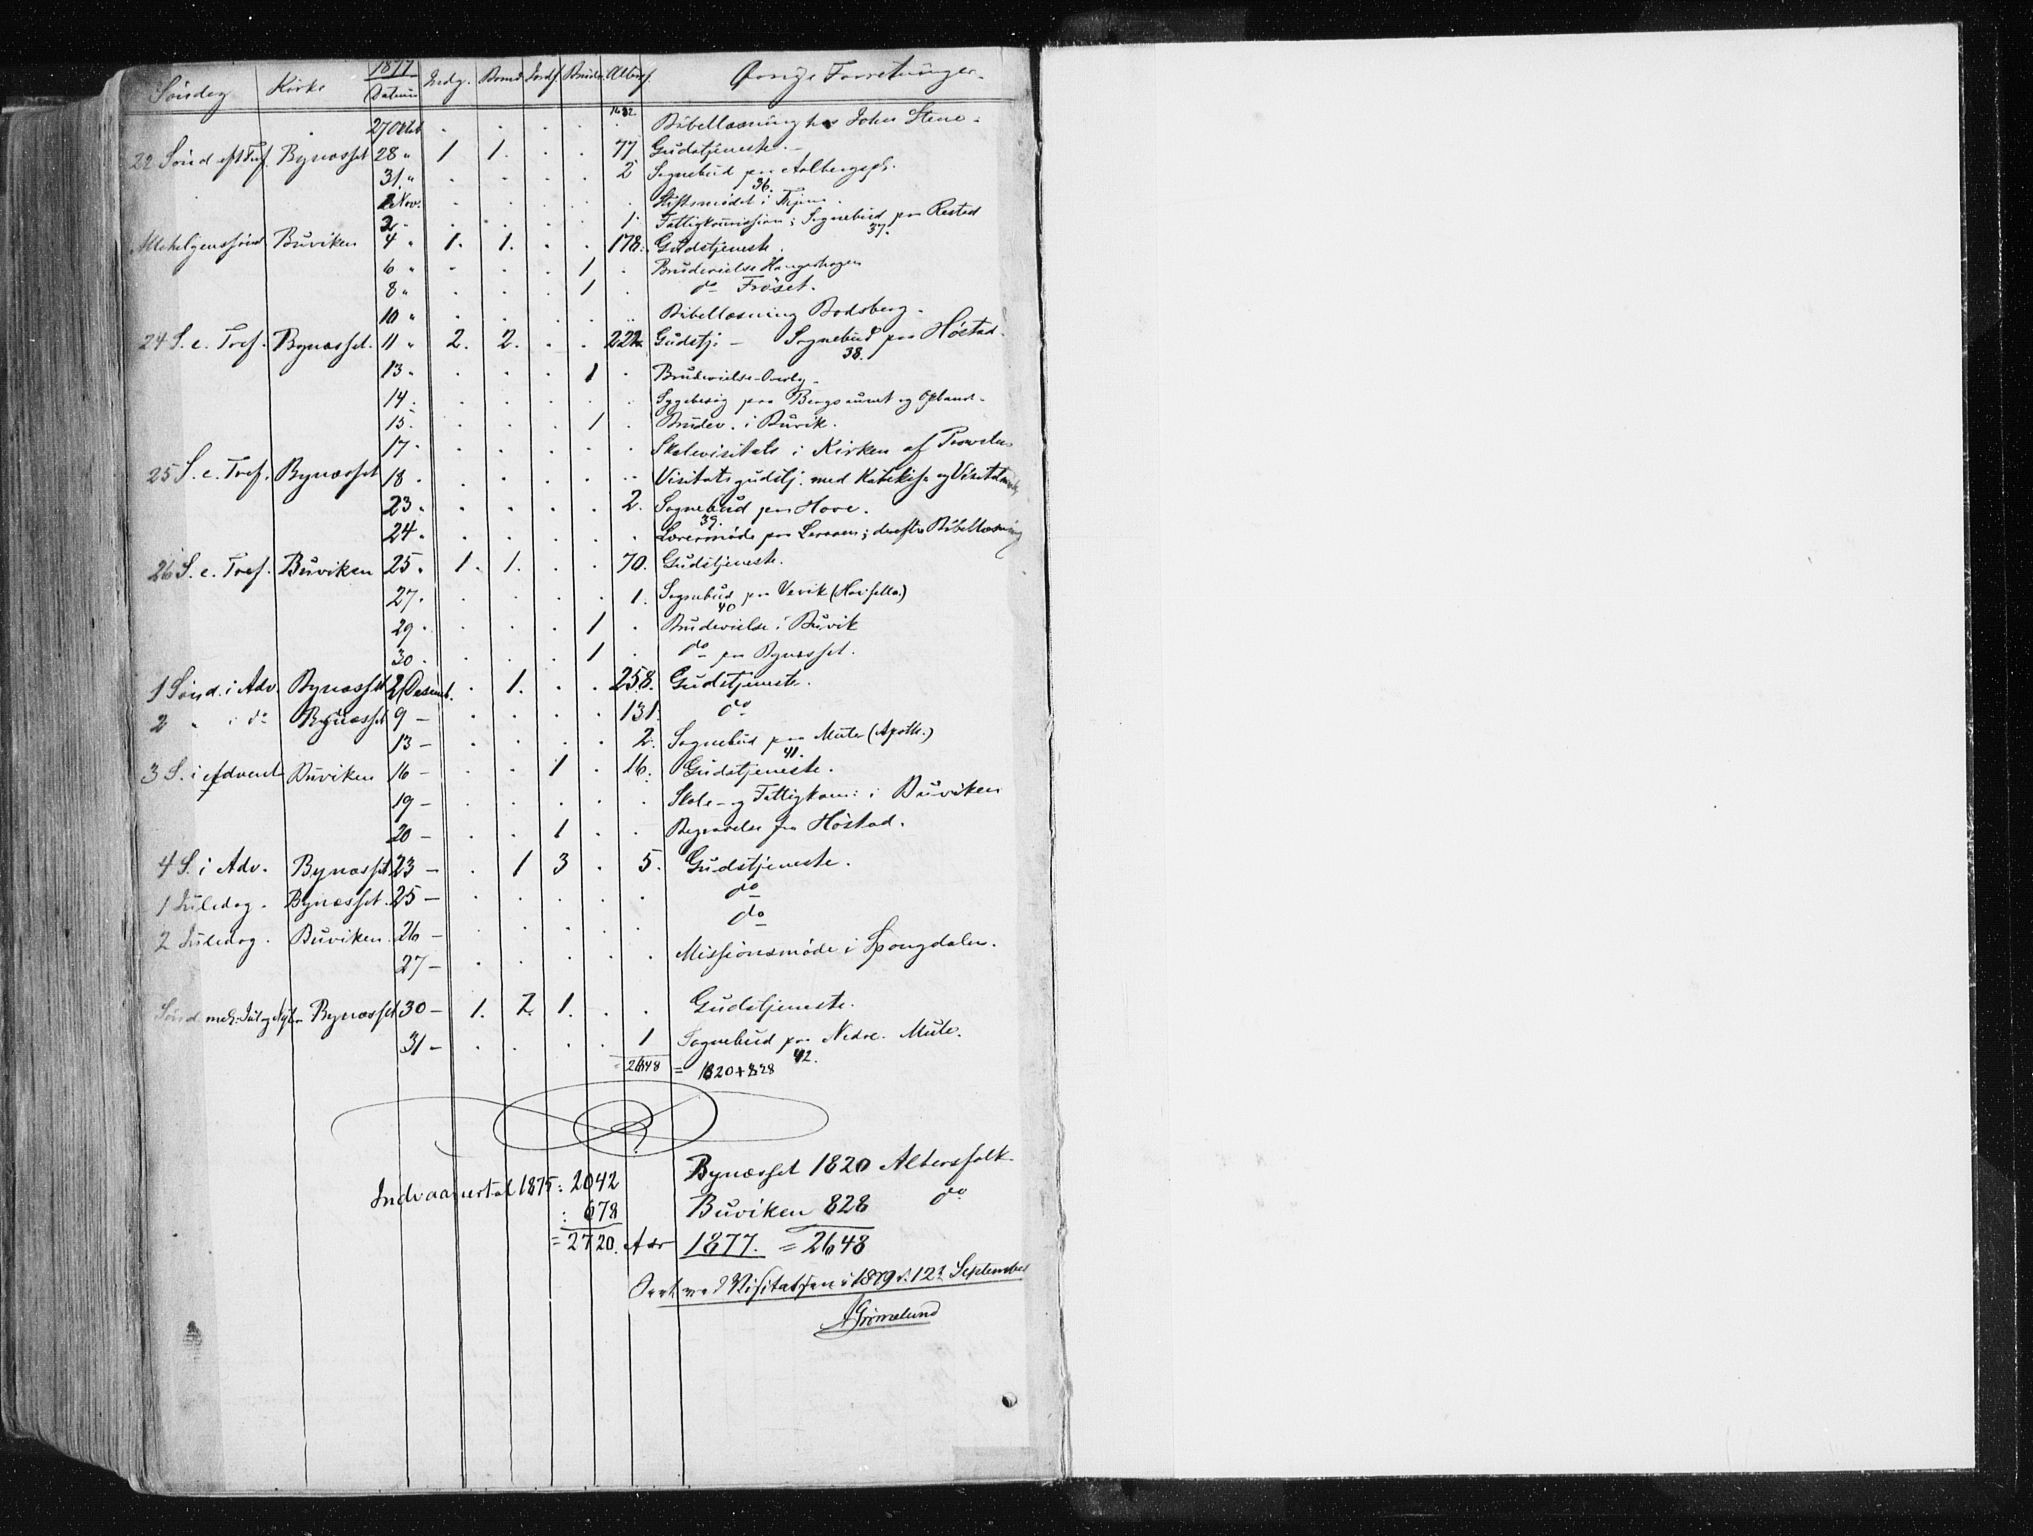 Søndag Kirke 1877 Datum Indg. Barned. Jordf. Brudev. Altersf. Øvrige Forretninger.
1682.
27 Octob . . . . . Bibellæsning hos John Stene.
22 Sönd eft Tref. Bynæsset 28 " 1 1. . . 77 Gudstjeneste.
31. " . . . . 2 Sognebud paa Aalbergspl.
36.
1 Nov. . . . . . Stiftsmödet i Thjem.
2 " . . . . 1. Fattigkommission; Sognebud paa Restad
37.
Allehelgenssönd Buviken 4 " 1. 1. . . 178. Gudstjeneste.
6 " . . . 1 . Brudevielse Haugerhagen
8 " . . . 1 . do Fröset.
10 " . . . . . Bibellæsning Bodsberg.
24 S. e. Tref. Bynæsset. 11 " 2. 2. . . 222. Gudstj. – Sognebud paa Höstad.
38.
13 " . . . 1 . Brudevielse Overby.
14. . . . . . Sygebesög paa Bergsaunet og Opland.
15. . . . 1 . Brudev. i Buvik.
17. . . . . . Skolevisitats i Kirken af Provsten
25 S. e. Tref. Bynæsset 18. . . . . . Visitatsgudstj. med Katekisa. og Visitatsmöde
23. . . . . 2. Sognebud paa Hove.
39.
24. . . . . . Lærermöde paa Leraaen; derefter Bibellæsning
26 S. e. Tref. Buviken 25. 1. 1. . . 70. Gudstjeneste.
27. . . . . 1. Sognebud paa Vevik
40
29. . . . 1 . Brudevielse i Buvik
30. . . . 1 . do paa Bynæsset.
1 Sönd. i Adv. Bynæsset 2 Decemb. . 1. . . 258. Gudstjeneste.
2 " i do Bynæsset 9 – . . . . 131. do
13 – . . . . 2. Sognebud paa Mule (Apoth.)
41.
3 S. i Advent Buviken 16 – . . 1 . 16. Gudstjeneste.
19 – . . . . . Skole- og Fattigkom: i Buviken
20 – . . 1 . . Begravelse fra Höstad.
4 S. i Adv. Bynæsset 23 – . 1 3 . 5. Gudstjeneste.
1 Juledag. Bynæsset. 25 – . . . . . do
2 Juledag. Buviken. 26 – . . . . . do
27 – . . . . . Missionsmöde i Spongdalen.
Sönd mel. Jul og Nytr Bynæsset 30 – 1. 2. 1. . . Gudstjeneste.
31 – . . . . 1 Sognebud paa Nedre Mule.
42.
2648 = 1820+828
Bynæsset 1820 Altersfolk.
Indvaanertal 1875: 2042
: 678 Buviken 828 do
= 2720. Aar 1877. = 2648
Seet ved Visitatsen i 1879 d. 12te September
AGrimelund